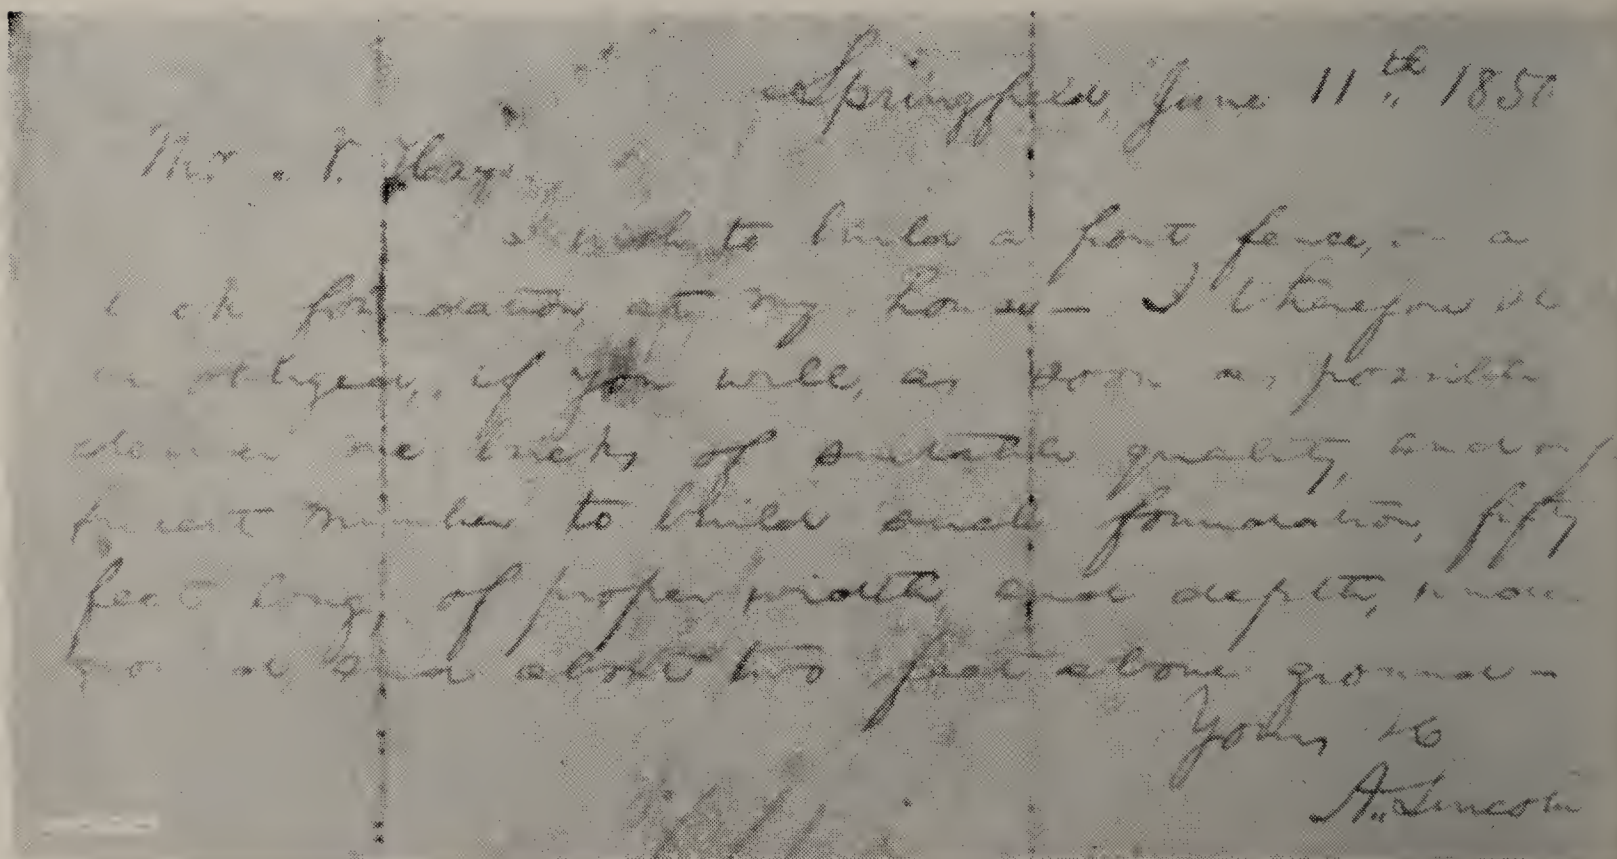 Springfield, June 11th 1850
Mr. N. Hay
I wish to build a front fence, on a
brick foundation, at my house— I therefore shall
be obliged, if you will, as soon as possible
deliver me bricks of suitable quality, and
sufficient number to build such foundation, fifty
feet long, of proper width, and depth,
to about two feet above ground—
Yours &c
A. Lincoln